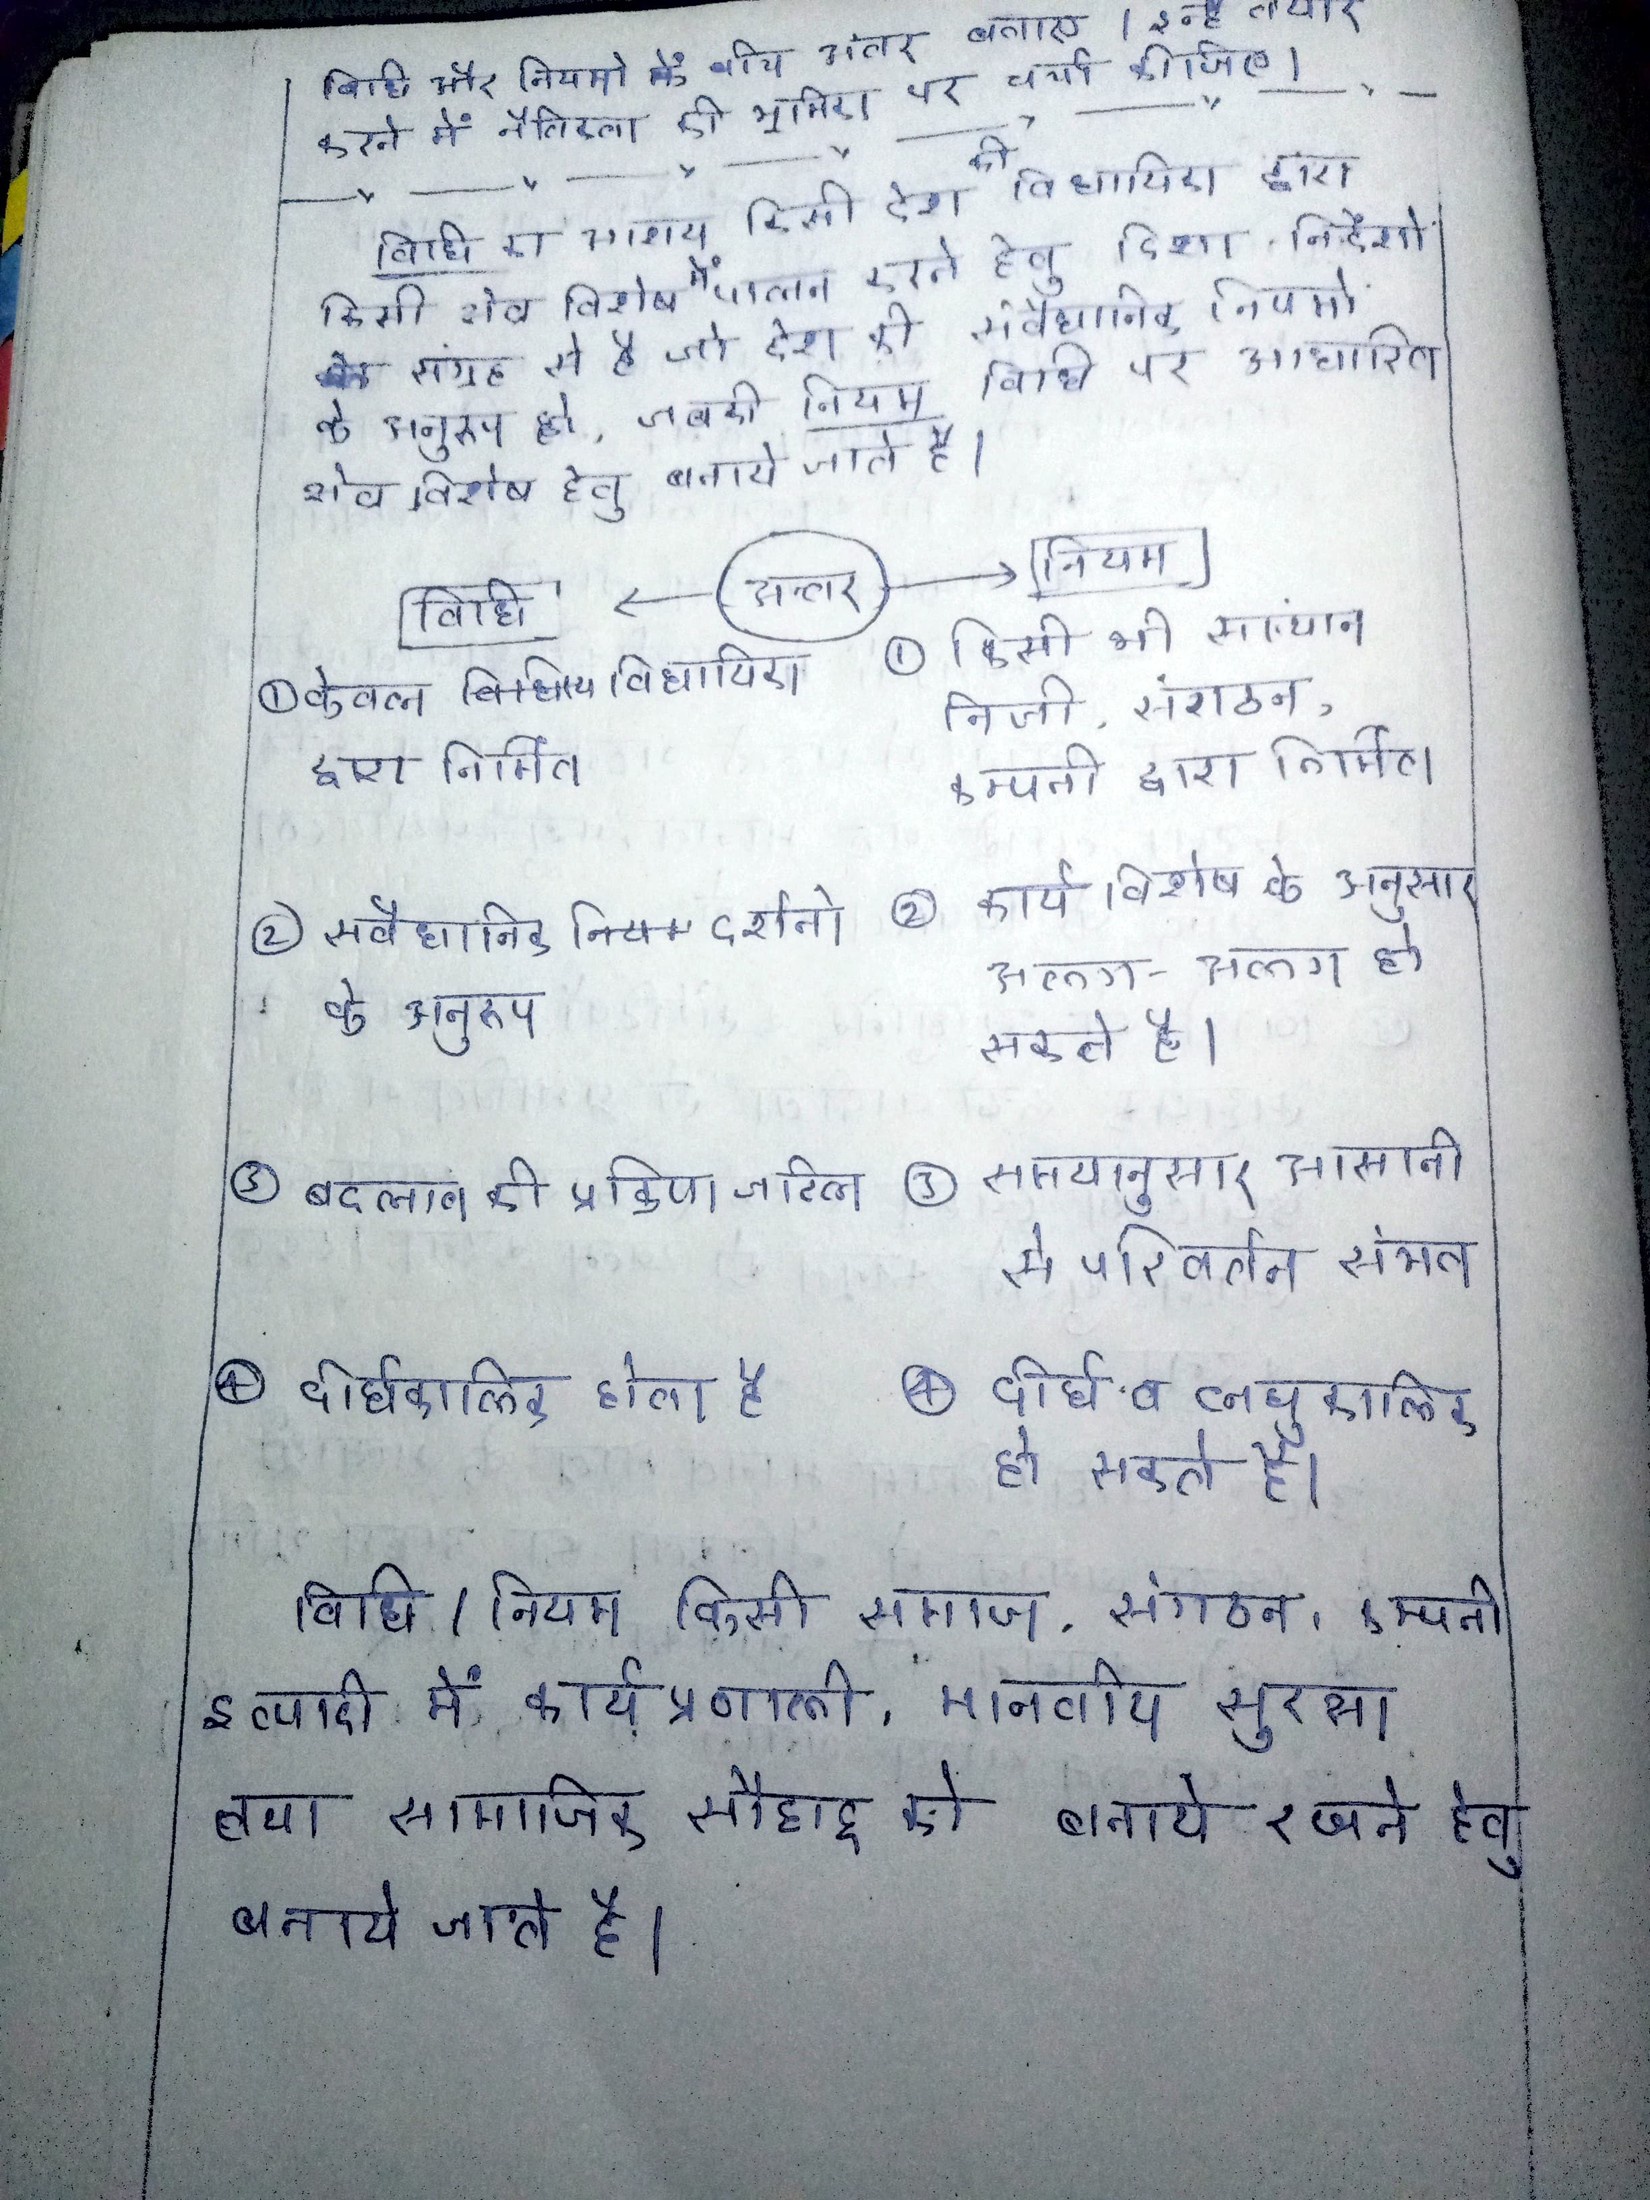 विधि और नियमो के बीच अंतर बताए । इन्हे तैयार
करने में नैतिकता की भूमिका पर चर्चा कीजिए।
विधि का आशय किसी देश की विधायिका द्वारा
किसी क्षेत्र विशेष में पालन करने हेतु दिशा निर्देशो
के संग्रह से है जो देश की संवैधानिक नियमो
के अनुरूप हो, जबकी नियम विधि पर आधारित
क्षेत्र विशेष हेतु बनाये जाते है।
विधि ← अन्तर → नियम
① केवल विधायिका
द्वारा निर्मित
① किसी भी संस्थान
निजी, संगठन,
कम्पनी द्वारा निर्मित।
② सवैधानिक दर्शनो
के अनुरूप
② कार्य विशेष के अनुसार
अलग - अलग हो
सकते है।
③ बदलाव की प्रक्रिया जटिल
③ समयानुसार आसानी
से परिवर्तन संभव
④ दीर्घकालिक होता है
④ दीर्घ व लघु कालिक
हो सकते है।
विधि / नियम किसी समाज, संगठन, कम्पनी
इत्यादी में कार्य प्रणाली, मानवीय सुरक्षा
तथा सामाजिक सौहाद्र को बनाये रखने हेतु
बनाये जाते है।